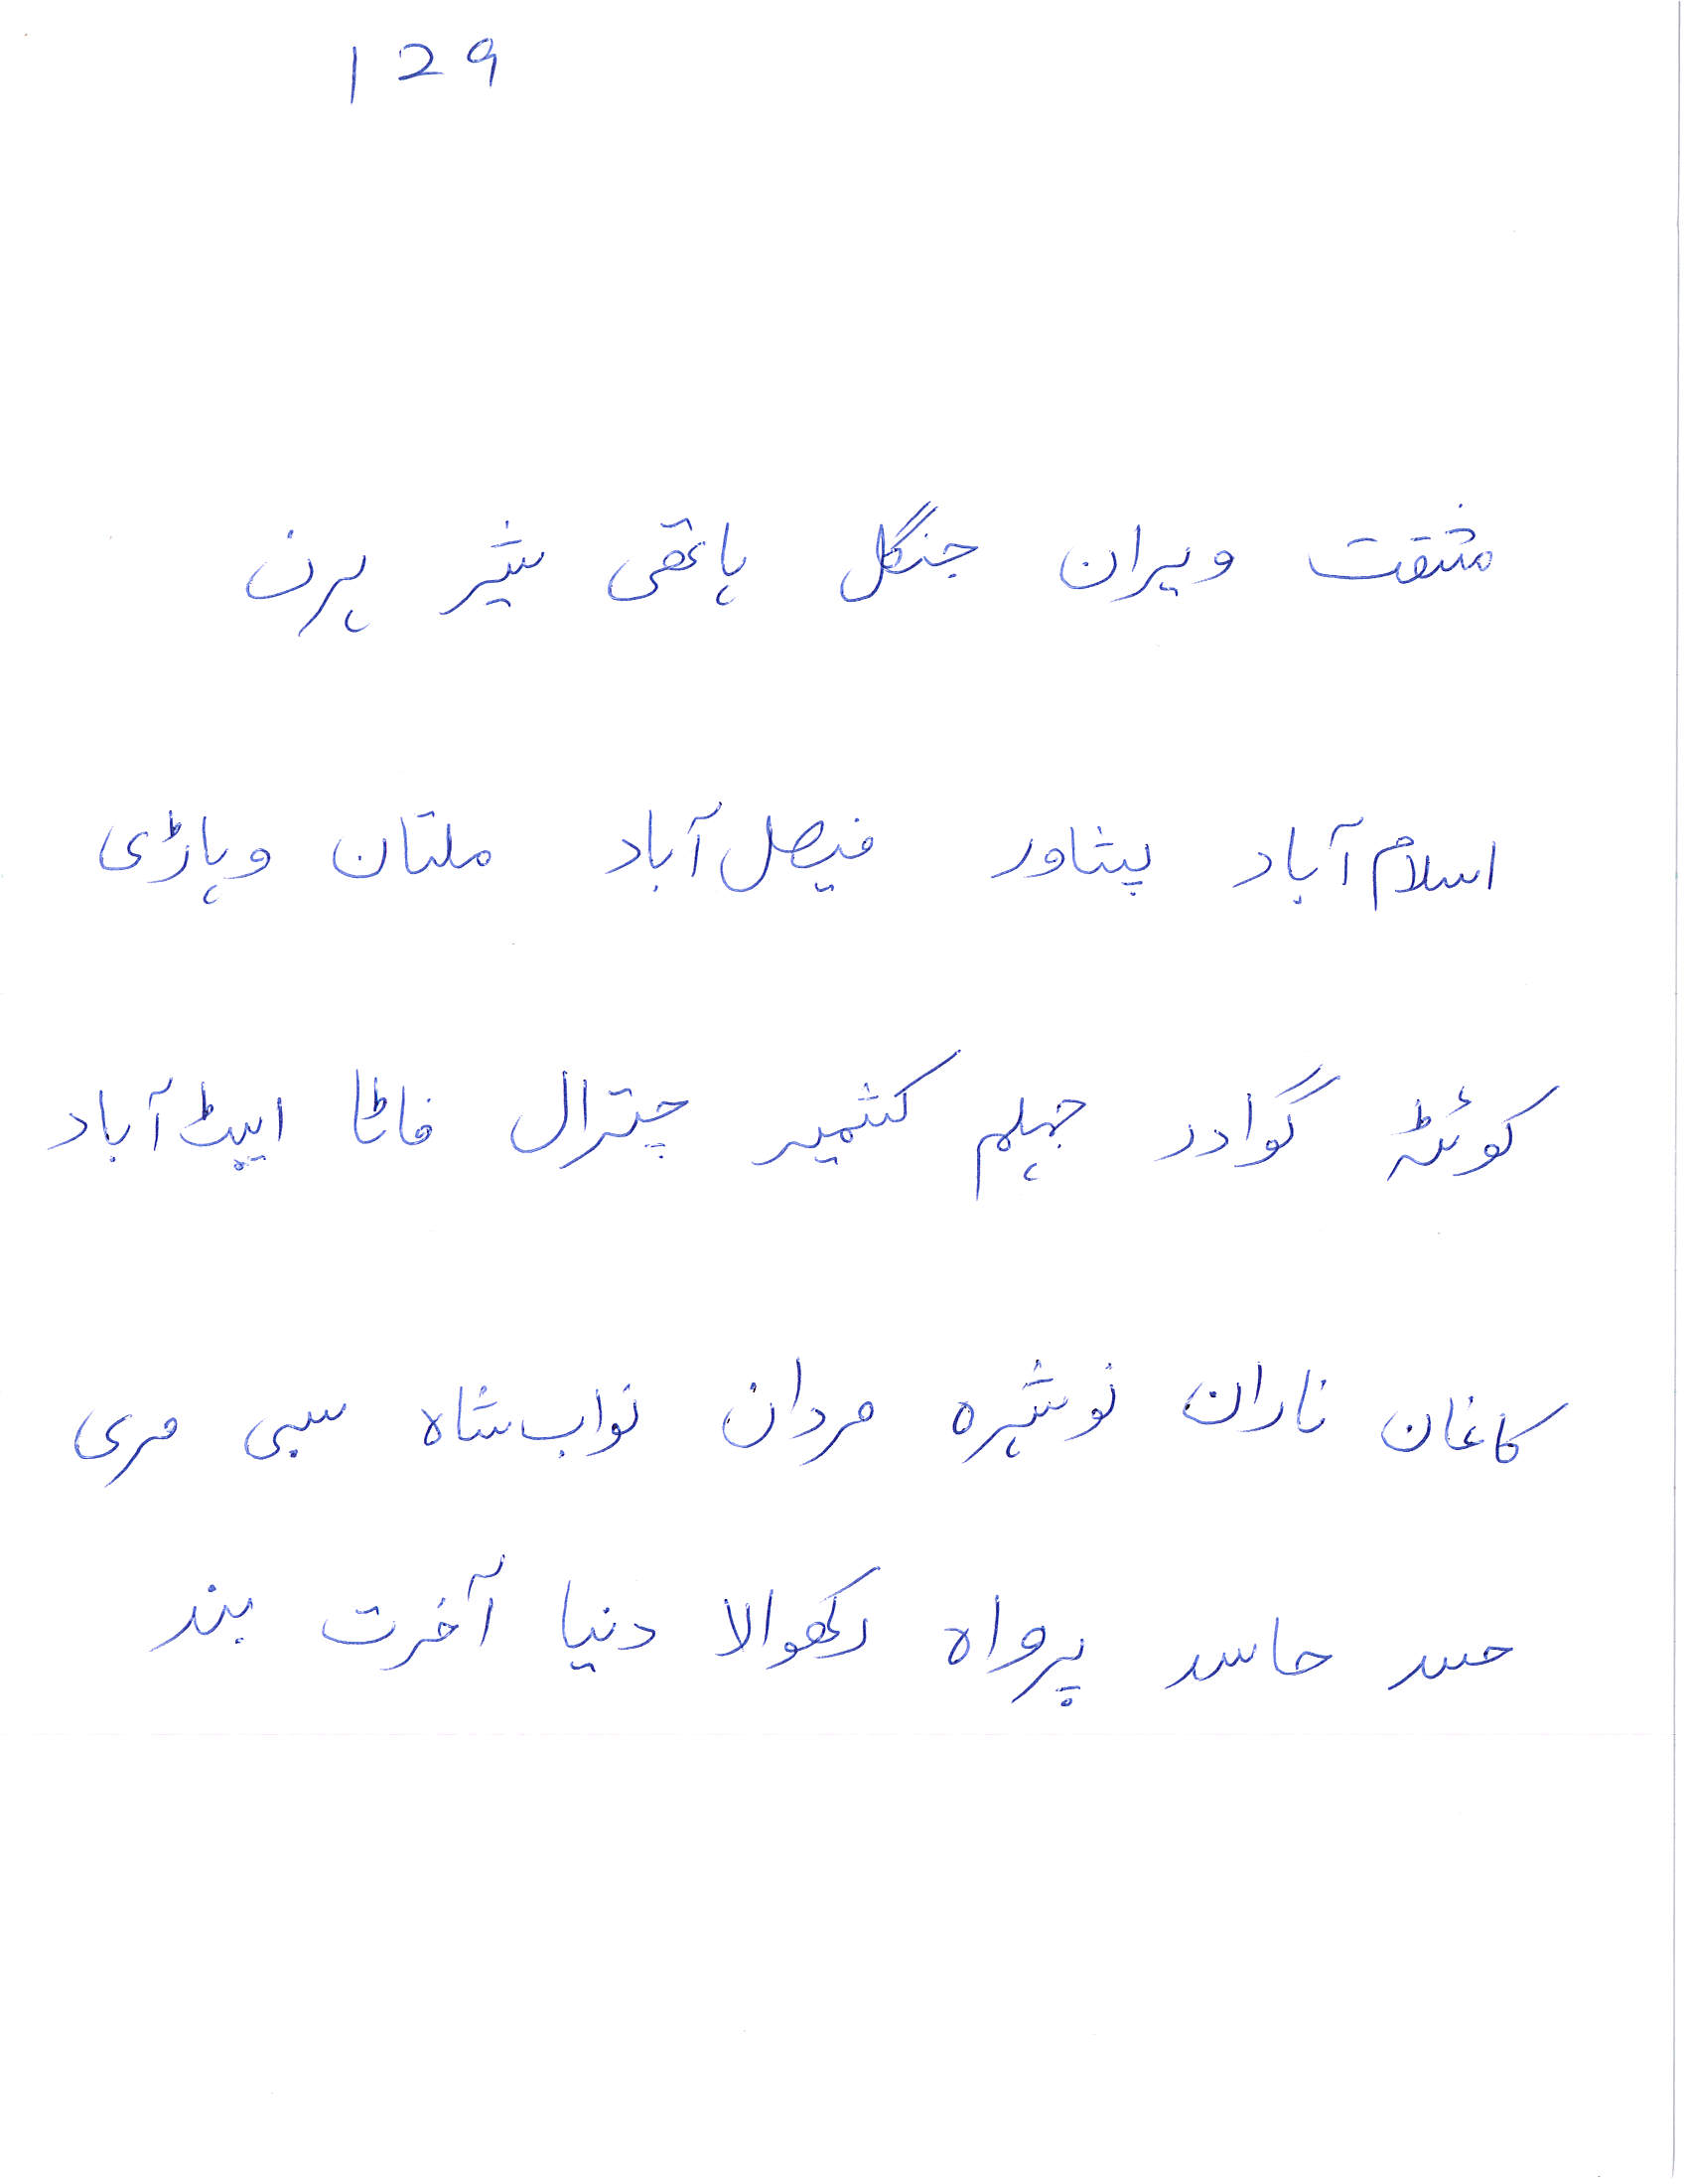 129
مشقت ویران جنگل ہاتھی شیر ہرن
اسلام آباد پشاور فیصل آباد ملتان وہاڑی
کوئٹہ گوادر جہلم کشمیر چترال فاٹا ایبٹ آباد
کاغان ناران نوشہرہ مردان نواب شاہ سبی مری
حسد حاسد پرواہ رکھوالا دنیا آخرت بند